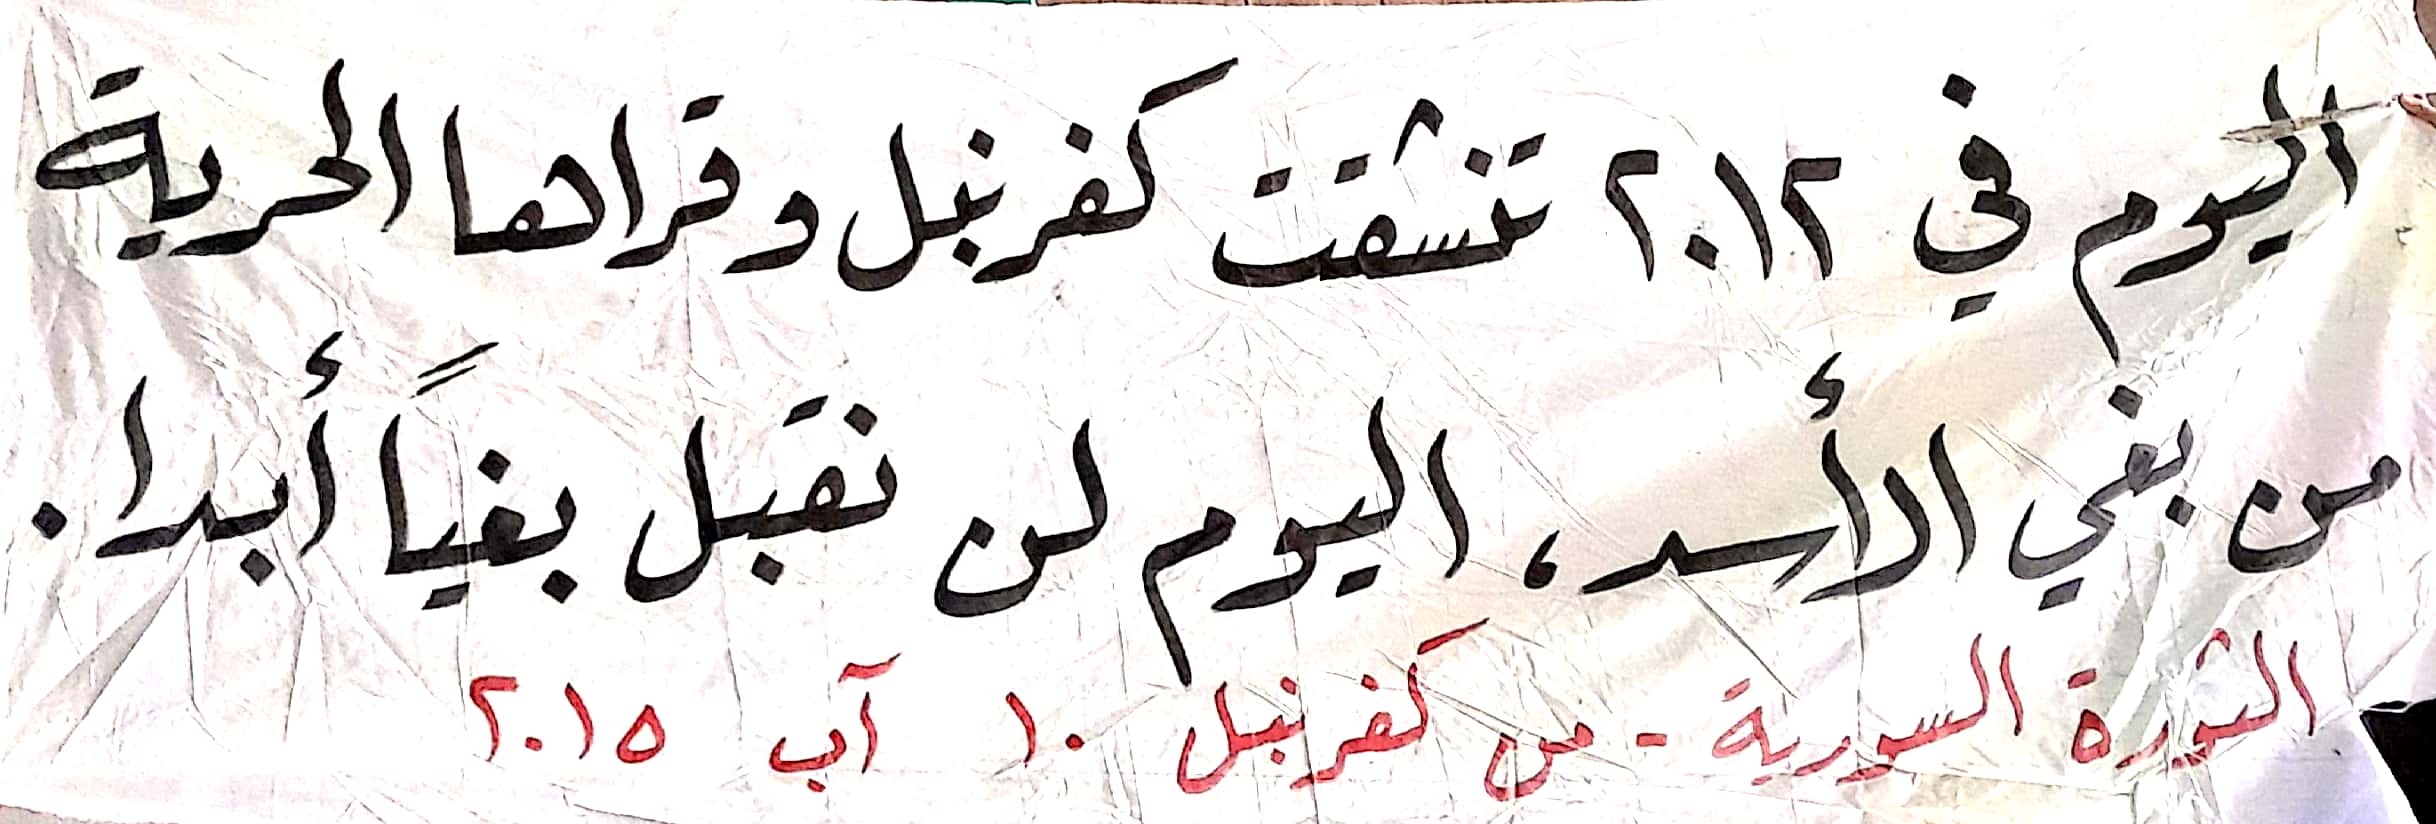 اليوم في ٢٠١٢ تنشقت كفرنبل وقراها الحرية
من بغي الأسد، اليوم لن نقبل بغياً أبدا.
الثورة السورية - من كفرنبل ١٠ آب ٢٠١٥